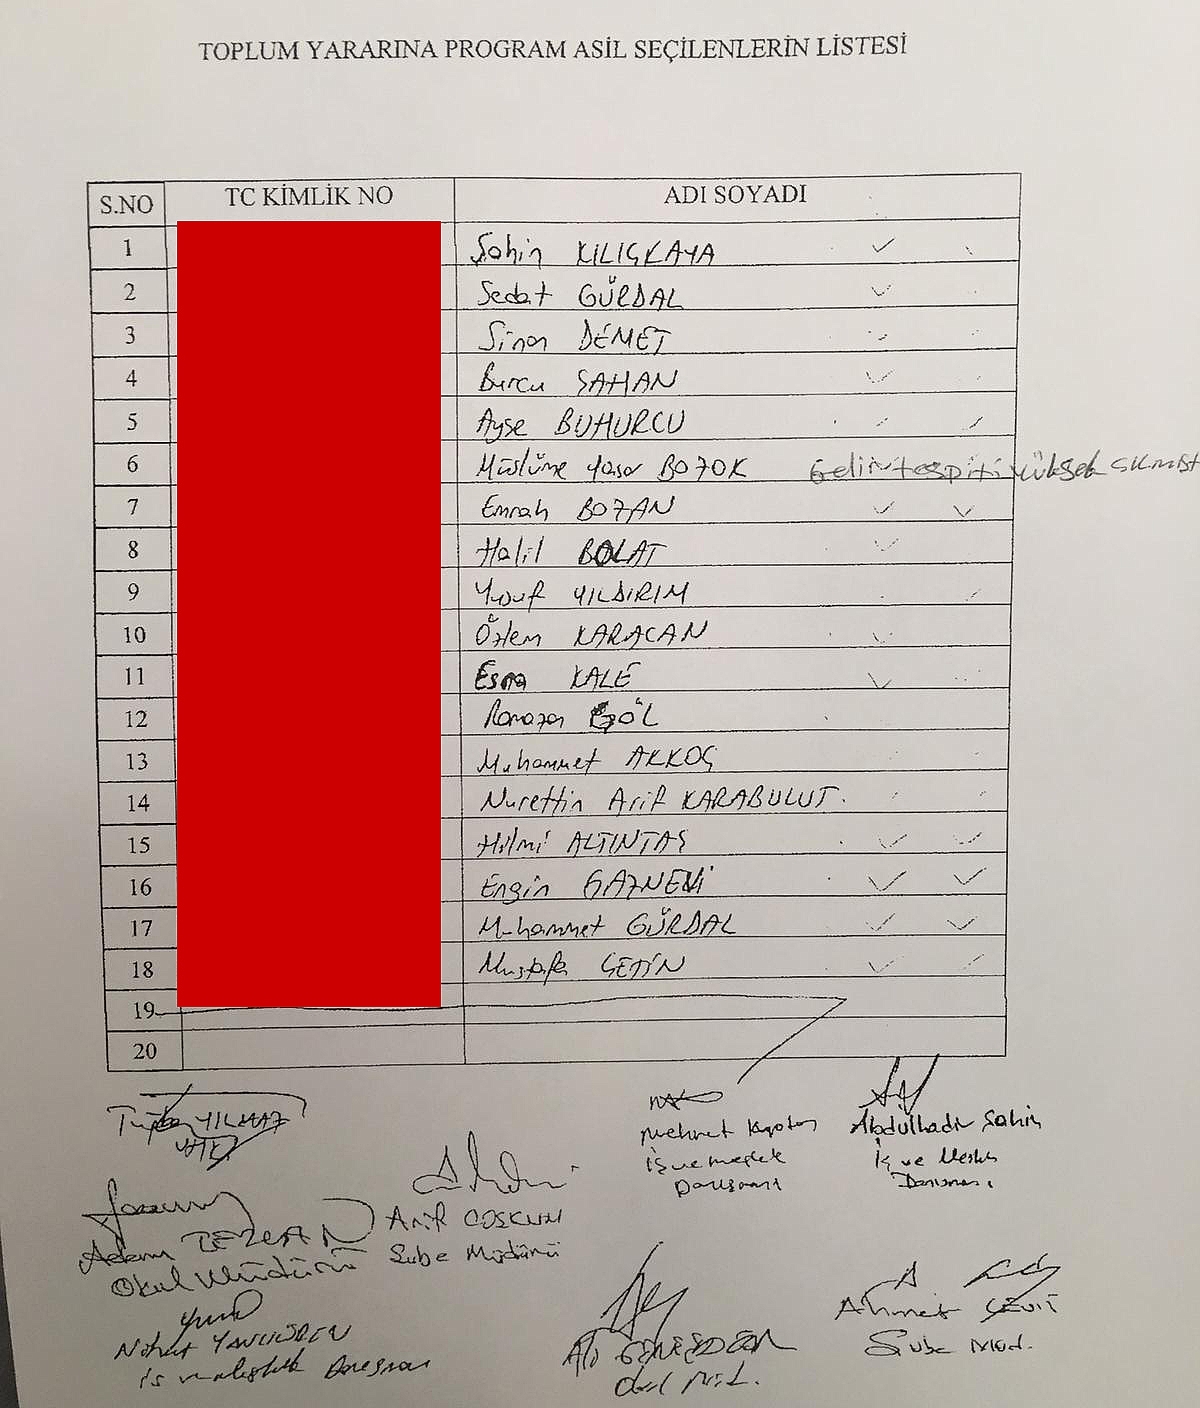 TOPLUM YARARINA PROGRAM ASİL SEÇİLENLERİN LİSTESİ
S.NO TC KİMLİK NO ADI SOYADI
1 Şahin KILIÇKAYA
2 Sedat GÜRDAL
3 Sinan DEMET
4 Burcu ŞAHAN
5 Ayşe BUHURCU
6 Müslüme Yaşar BOZOK Gelir tespiti yüksek çıkmıştı
7 Emrah BOZAN
8 Halil BOLAT
9 Yusuf YILDIRIM
10 Özlem KARACAN
11 Esma KALE
12 Ramazan GÖL
13 Muhammet AKKOÇ
14 Nurettin Arif KARABULUT.
15 Hilmi ALTINTAŞ
16 Engin GAZNEVİ
17 Muhammet GÜRDAL
18 Mustafa ÇETİN
19
20
YILMAZ
Mehmet Abdülhadi Şahin
İş ve meslek İş ve Meslek
Danışmanı Danışmanı
Adem TEZCAN Arif COŞKUN
Okul Müdürü Şube Müdürü
Ahmet
Nihat YAVUÖREN Şube Müd.
Ali
İş ve meslek Danışmanı
Okul Müd.